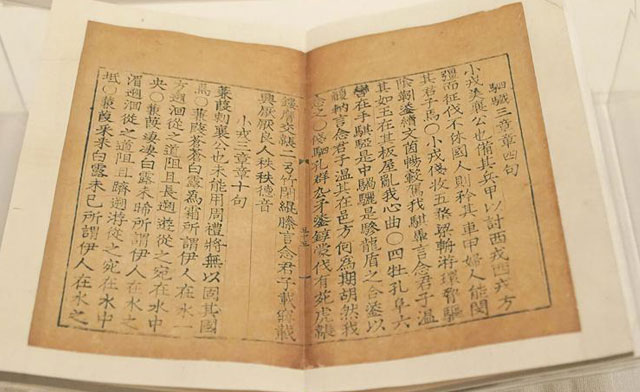 駟驖三章章四句
小戎美襄公也備其兵甲以討西戎西戎方
彊而征伐不休國人則矜其車甲婦人能閔
其君子焉○小戎俴收五楘梁輈游環脅驅
陰靷鋈續文茵暢轂駕我騏馵言念君子溫
其如玉在其板屋亂我心曲○四牡孔阜六
轡在手騏駵是中騧驪是驂龍盾之合鋈以
觼軜言念君子溫其在邑方何為期胡然我
念之○俴駟孔群厹矛鋈錞蒙伐有苑虎韔
鏤膺交韔二弓竹閉緄縢言念君子載寢載
興厭厭良人秩秩德音
小戎三章章十句
蒹葭刺襄公也未能用周禮將無以固其國
焉○蒹葭蒼蒼白露為霜所謂伊人在水一
方遡洄從之道阻且長遡游從之宛在水中
央○蒹葭凄凄白露未晞所謂伊人在水之
湄遡洄從之道阻且躋遡游從之宛在水中
坻○蒹葭采采白露未已所謂伊人在水之